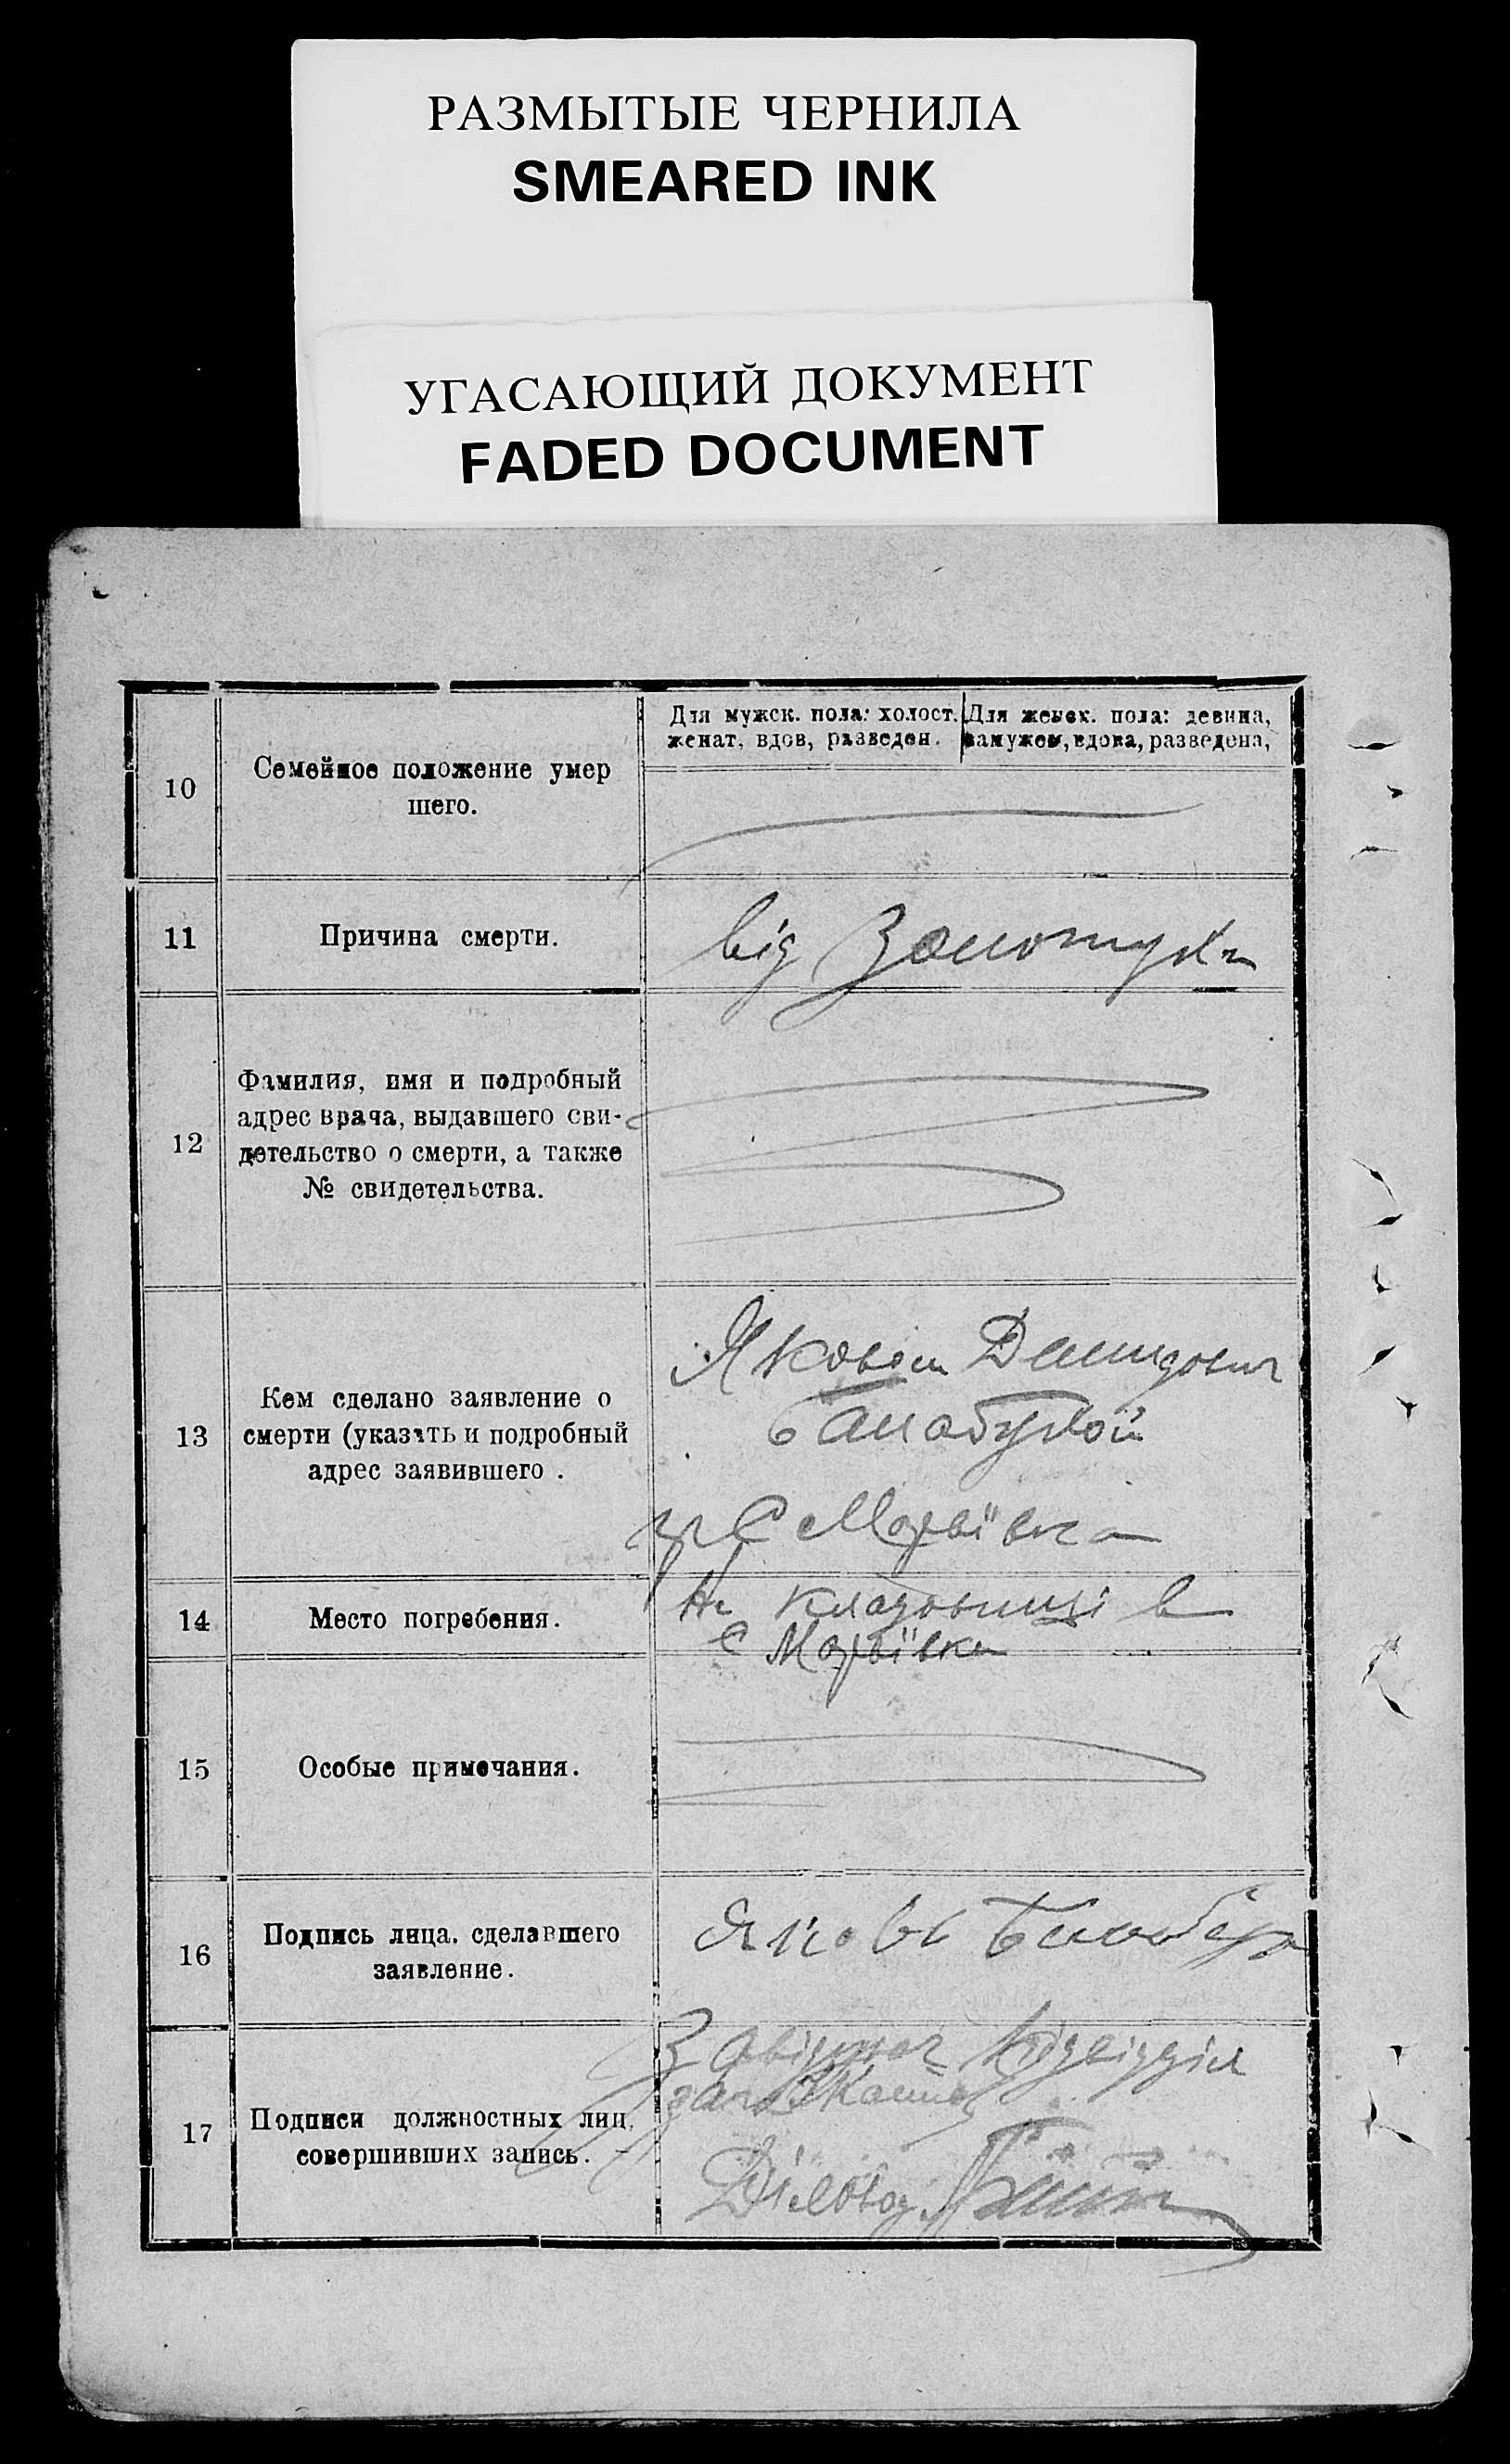 РАЗМЫТЫЕ ЧЕРНИЛА
SMEARED INK
УГАСАЮЩИЙ ДОКУМЕНТ
FADED DOCUMENT
10
Семейное положение умер
шего.
Для мужск. пола: холост.
женат, вдов, разведен.
Для женск. пола: девица,
замужем, вдова, разведена,
11
Причина смерти.
від Золотухи
12
Фамилия, имя и подробный
адрес врача, выдавшего сви-
детельство о смерти, а также
№ свидетельства.
13
Кем сделано заявление о
смерти (указать и подробный
адрес заявившего .
Яковом Демидович
С Мар'ївка
14
Место погребения.
На кладовищі в
С Мар'ївка
15
Особые примечания.
16
Подпись лица, сделавшего
заявление.
Яковь
17
Подписи должностных лиц,
совершивших запись.
Завідувач Підвідділ
Діловод